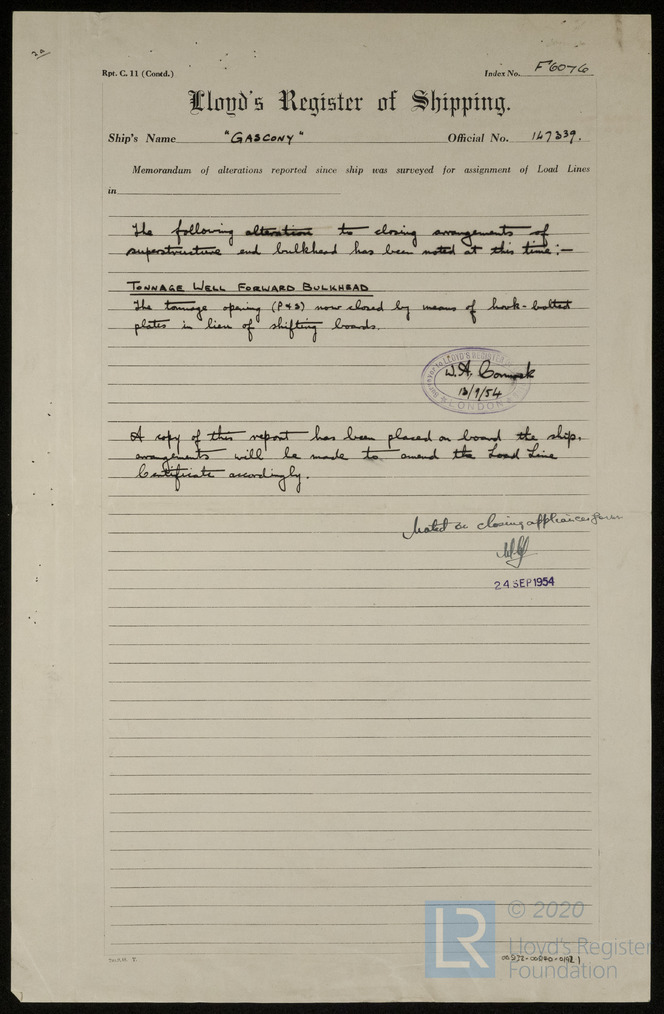 Rpt. C. 11 (Contd.)
Index No. F6076
Lloyd's Register of Shipping.
Ship's Name "GASCONY" Official No. 147339.
Memorandum of alterations reported since ship was surveyed for assignment of Load Lines
in
The following alteration to closing arrangements of
superstructure end bulkhead has been noted at this time:—
TONNAGE WELL FORWARD BULKHEAD
The tonnage opening (P & S) now closed by means of hook-bolted
plates in lieu of shifting boards.
Surveyor to LLOYD'S REGISTER
W.A.
13/9/54
LONDON
A copy of this report has been placed on board the ship.
arrangements will be made to amend the Load Line
Certificate accordingly.
Noted on closing appliances form
24 SEP 1954
© 2020
LR
Lloyd's Register
Foundation